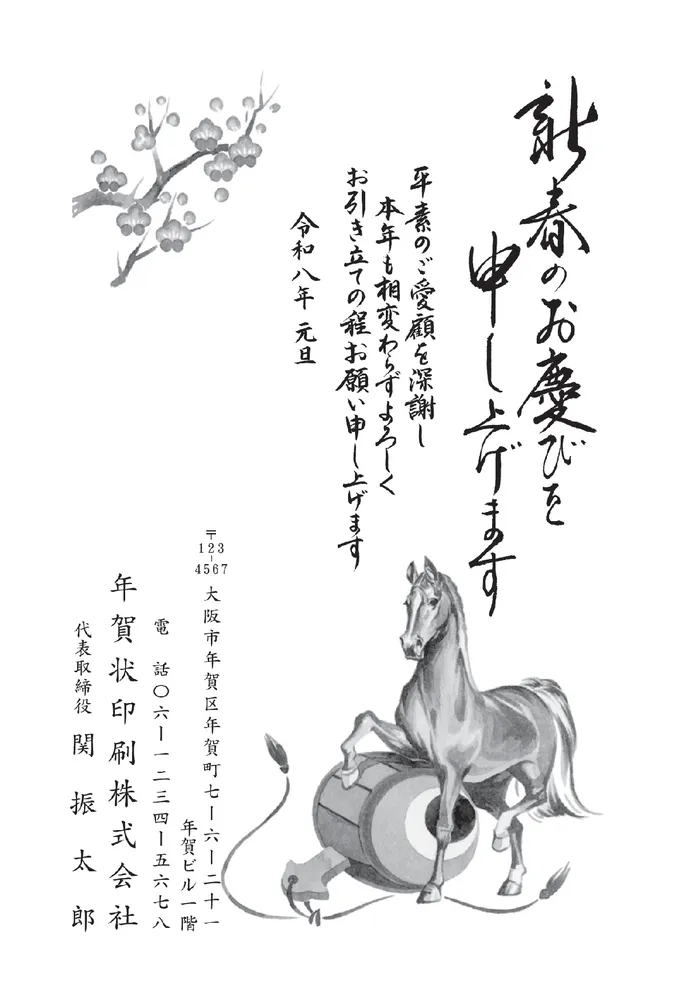 新春のお慶びを
申し上げます
平素のご愛顧を深謝し
本年も相変わらずよろしく
お引き立ての程お願い申し上げます
令和八年 元旦
〒123-4567
大阪市年賀区年賀町七ー六ー二十一
年賀ビル一階
電 話〇六ー一二三四ー五六七八
年賀状印刷株式会社
代表取締役 関 振 太 郎